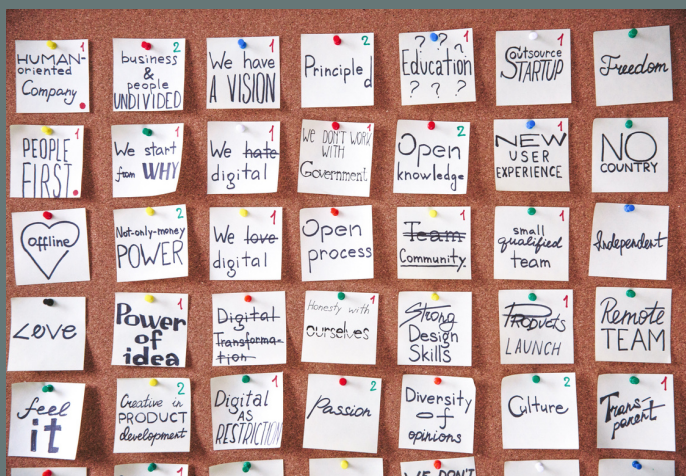 HUMAN-
oriented
Company
1
business
&
people
UNDIVIDED
2
We have
A VISION
1
Principled
2
? ? ?
Education
? ? ?
1
Outsource
STARTUP
1
Freedom
PEOPLE
FIRST
1
We start
from WHY
1
We hate
digital
1
WE DON'T WORK
WITH
Government
1
Open
knowledge
2
NEW
USER
EXPERIENCE
1
NO
COUNTRY
offline
Not-only-money
POWER
2
We love
digital
1
Open
process
Team
Community
1
small
qualified
team
1
Independent
Love
Power
of
idea
1
Digital
Transforma-
tion
Honesty with
ourselves
1
Strong
Design
Skills
Products
LAUNCH
1
Remote
TEAM
feel
it
Creative in
PRODUCT
development
2
Digital
AS
RESTRICTION
1
Passion
2
Diversity
of
opinions
Culture
2
Trans-
parent
1
WE DON'T